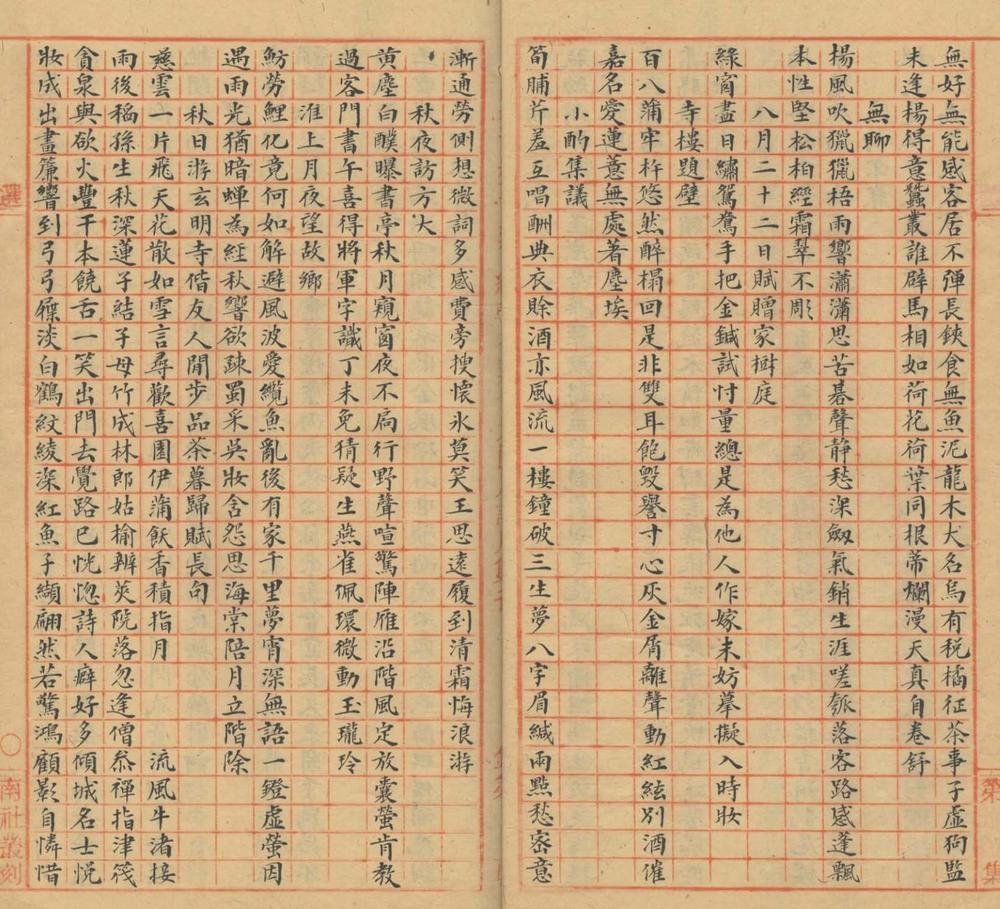 無好無能感客居不彈長鋏食無魚泥龍木犬名烏有稅橘征茶事子虛狗監
未逢楊得意蠶叢誰辟馬相如荷花荷葉同根蒂爛漫天真自卷舒
無聊
楊風吹獵獵梧雨響瀟瀟思苦碁聲靜愁深劒氣銷生涯嗟瓠落客路感蓬飄
本性堅松柏經霜翠不彫
八月二十二日賦贈家樹庭
綠窗盡日繡鴛鴦手把金鍼試忖量總是為他人作嫁未妨摹擬入時妝
寺樓題壁
百八蒲牢杵悠然醉榻回是非雙耳飽毀譽寸心灰金屑離聲動紅絃別酒催
嘉名愛蓮薏無處著塵埃
小酌集議
筍脯芹羞互唱酬典衣賒酒亦風流一樓鐘破三生夢八字眉緘兩點愁密意
漸通勞側想微詞多感費旁搜懷氷莫笑王思遠履到清霜悔浪游
秋夜訪方大
黃塵白醭曝書亭秋月窺窗夜不扃行野聲喧驚陣雁沿階風定放囊螢肯教
過客門書午喜得將軍字識丁未免猜疑生燕雀佩環微動玉瓏玲
淮上月夜望故鄉
魴勞鯉化竟何如解避風波愛纜魚亂後有家千里夢宵深無語一鐙虛螢因
遇雨光猶暗蟬為經秋響欲疎蜀采吳妝含怨思海棠陪月立階除
秋日游玄明寺偕友人閒步品茶暮歸賦長句
慈雲一片飛天花散如雪言尋歡喜園伊蒲飫香積指月 流風牛渚接
雨後稻孫生秋深蓮子結子母竹成林郎姑榆辨莢院落忽逢僧叅禪指津筏
貪泉與欲火豐干本饒舌一笑出門去覺路已恍惚詩人癖好多傾城名士悦
妝成出畫簾響到弓弓屧淡白鶴紋綾深紅魚子纈翩然若驚鴻顧影自憐惜
選
二
第
集
〇南社叢刻